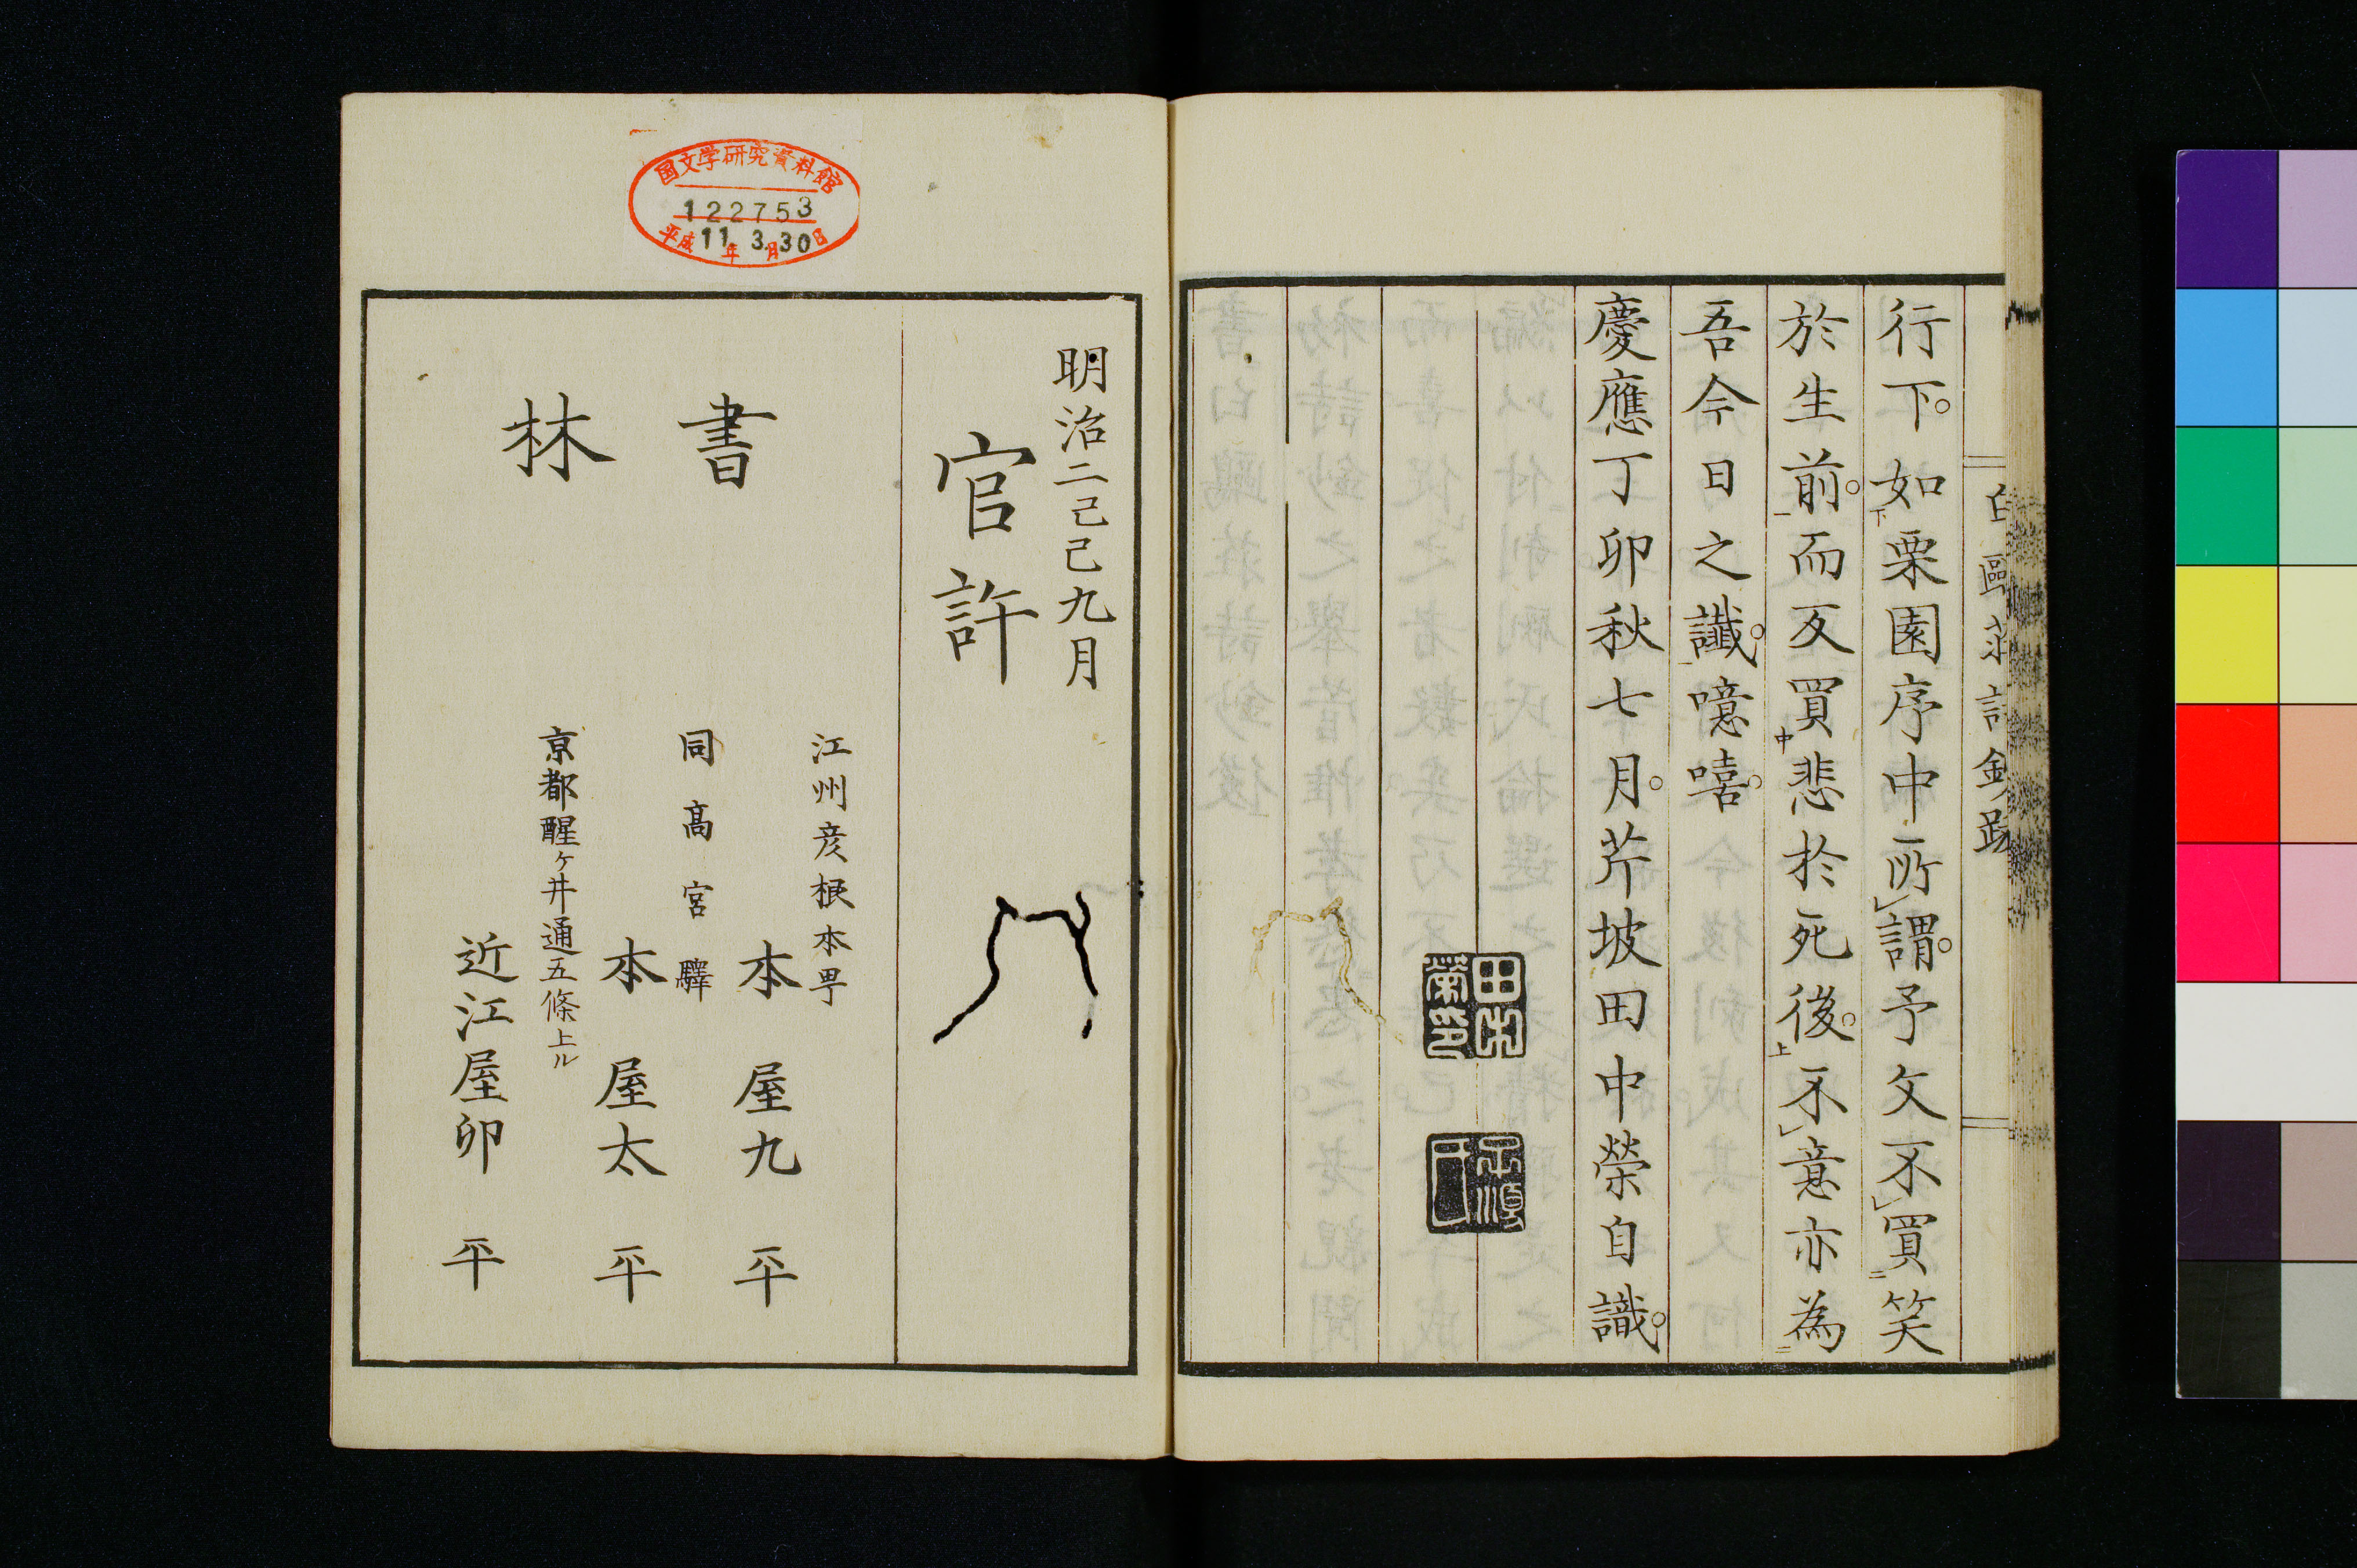 行下。如栗園序中所謂。予文不買笑
於生前。而反買悲於死後。不意亦為
吾今日之讖。噫嘻。
慶應丁卯秋七月。芹坡田中榮自識。
明治二己巳九月
官許
書林
江州彦根本町
本屋九平
同高宮驛
本屋太平
京都醒ヶ井通五條上ル
近江屋卯平
国文学研究資料館
122753
平成11年3月30日